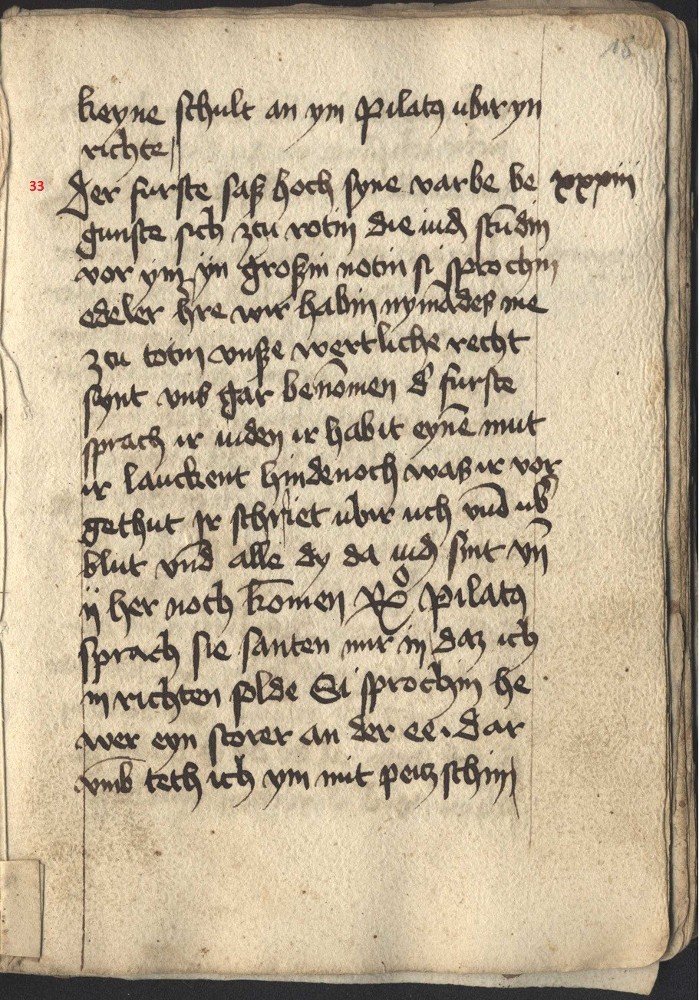 18
keyne schult an ym Pilatꝯ ubir yn
richte
33 Der furste saß hoch syne varbe be xxxiii
gunste sich zcu rotin die iudꝫ stūdin
vor ym yn großin notin si sprochin
edeler h̄re wir habin nymādeß me
zcu totin vnße wertliche recht
synt vns gar benōmen d' furste
sprach ir iuden ir habit eynē mut
ir lauckent hindenoch waß ir vor
gethut Ir schriet ubir uch vnd ub'
blut vnd alle dy da iudꝫ sint vn̄
y her noch kōmen Rͦ Pilatꝯ
sprach sie santen mir in daz ich
in richten solde Si sprochin he
wer eyn storer an der ee. Dar
vmb teth ich ym mit peitzschin